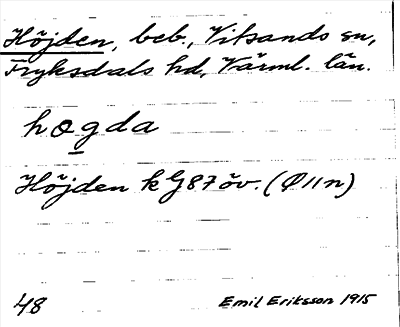 Höjden, beb., Vitsands sn,
Fryksdals hd, Värml. län.
hogda
Höjden kG87öv. (Ø11n)
48 Emil Eriksson 1915